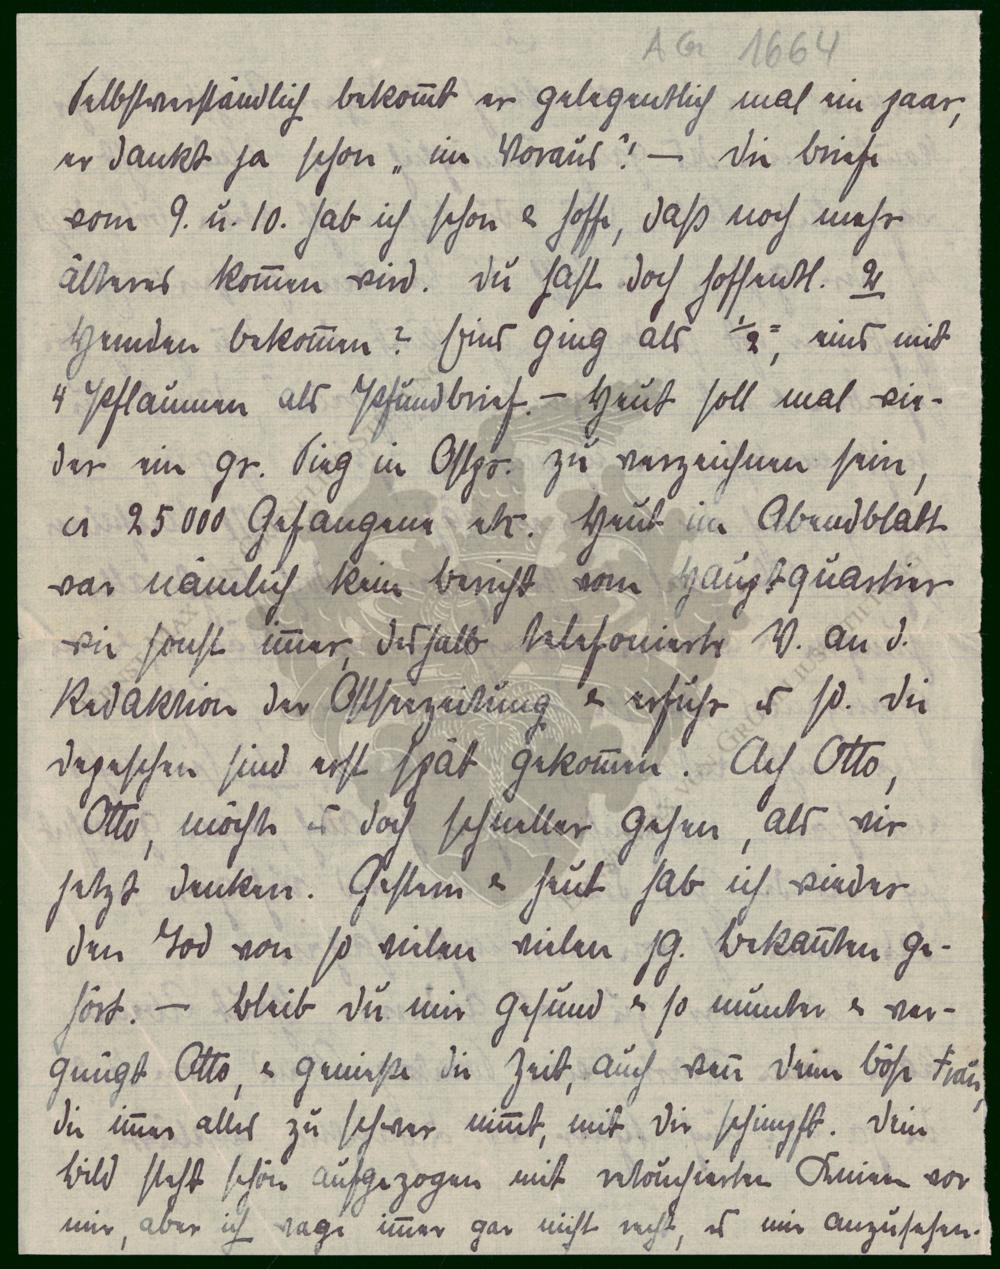 A Gr 1664
Selbstverständlich bekom̄t er gelegentlich mal ein paar,
er dankt ja schon „im Voraus"! — Die Briefe
vom 9. u. 10. hab ich schon & hoffe, daß noch mehr
älteres kom̄en wird. Du hast doch hoffentl. 2
Hemden bekom̄en? Eins ging als 1/2 ℔, eins mit
4 Pflaumen als Pfundbrief. — Heut soll mal wie-
der ein gr. Sieg in Ostpr. zu verzeichnen sein,
ca 25 000 Gefangene etc. Heut im Abendblatt
war nämlich kein Bericht vom Hauptquartier
wie sonst im̄er, deshalb telefonierte V. an d.
Redaktion der Ostseezeitung & erfuhr es so. Die
Depeschen sind erst spät gekom̄en. Ach Otto,
Otto, möchte es doch schneller gehen, als wir
jetzt denken. Gestern & heut hab ich wieder
den Tod von so vielen vielen jg. Bekan̄ten ge-
hört. — Bleib Du mir gesund & so munter & ver-
gnügt Otto, & genieße die Zeit, auch wen̄ Deine böse Frau,
die im̄er alles zu schwer nim̄t, mit Dir schimpft. Dein
Bild steht schön aufgezogen mit retouchierten Knieen vor
mir, aber ich wage im̄er gar nicht recht, es mir anzusehen.